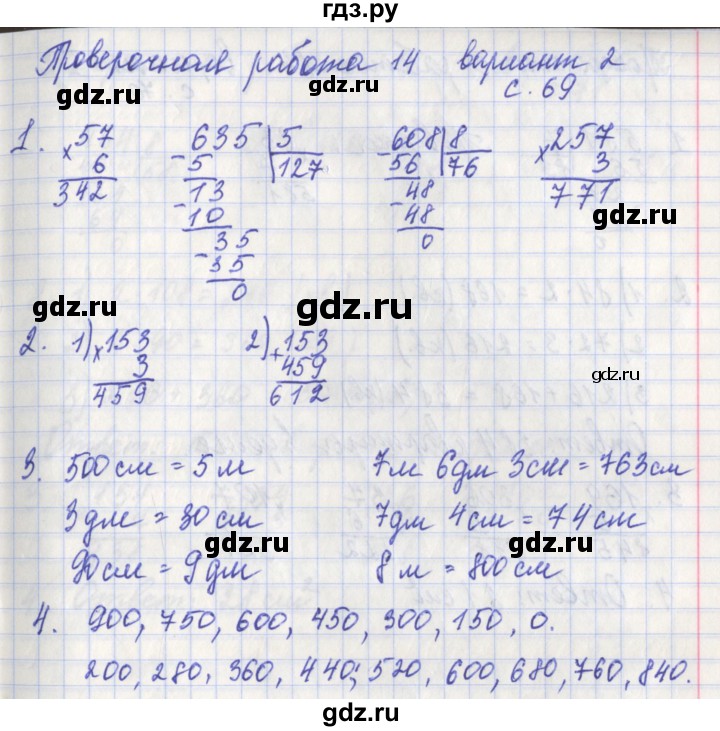 гдз.ру
Проверочная работа 14 вариант 2
с. 69
gdz.ru gdz.ru
1. × 57 - 635 | 5 - 608 | 8 × 257
6 5 127 56 76 3
342 - 13 48 771
10 - 48 gdz.ru
35 0
- 35
0
gdz.ru gdz.ru
2. 1) × 153 2) + 153
3 459
459 612
gdz.ru
3. 500 см = 5 м 7 м 6 дм 3 см = 763 см
3 дм = 30 см 7 дм 4 см = 74 см
gdz.ru gdz.ru
90 см = 9 дм 8 м = 800 см
4. 900, 750, 600, 450, 300, 150, 0.
200, 280, 360, 440, 520, 600, 680, 760, 840.
gdz.ru gdz.ru